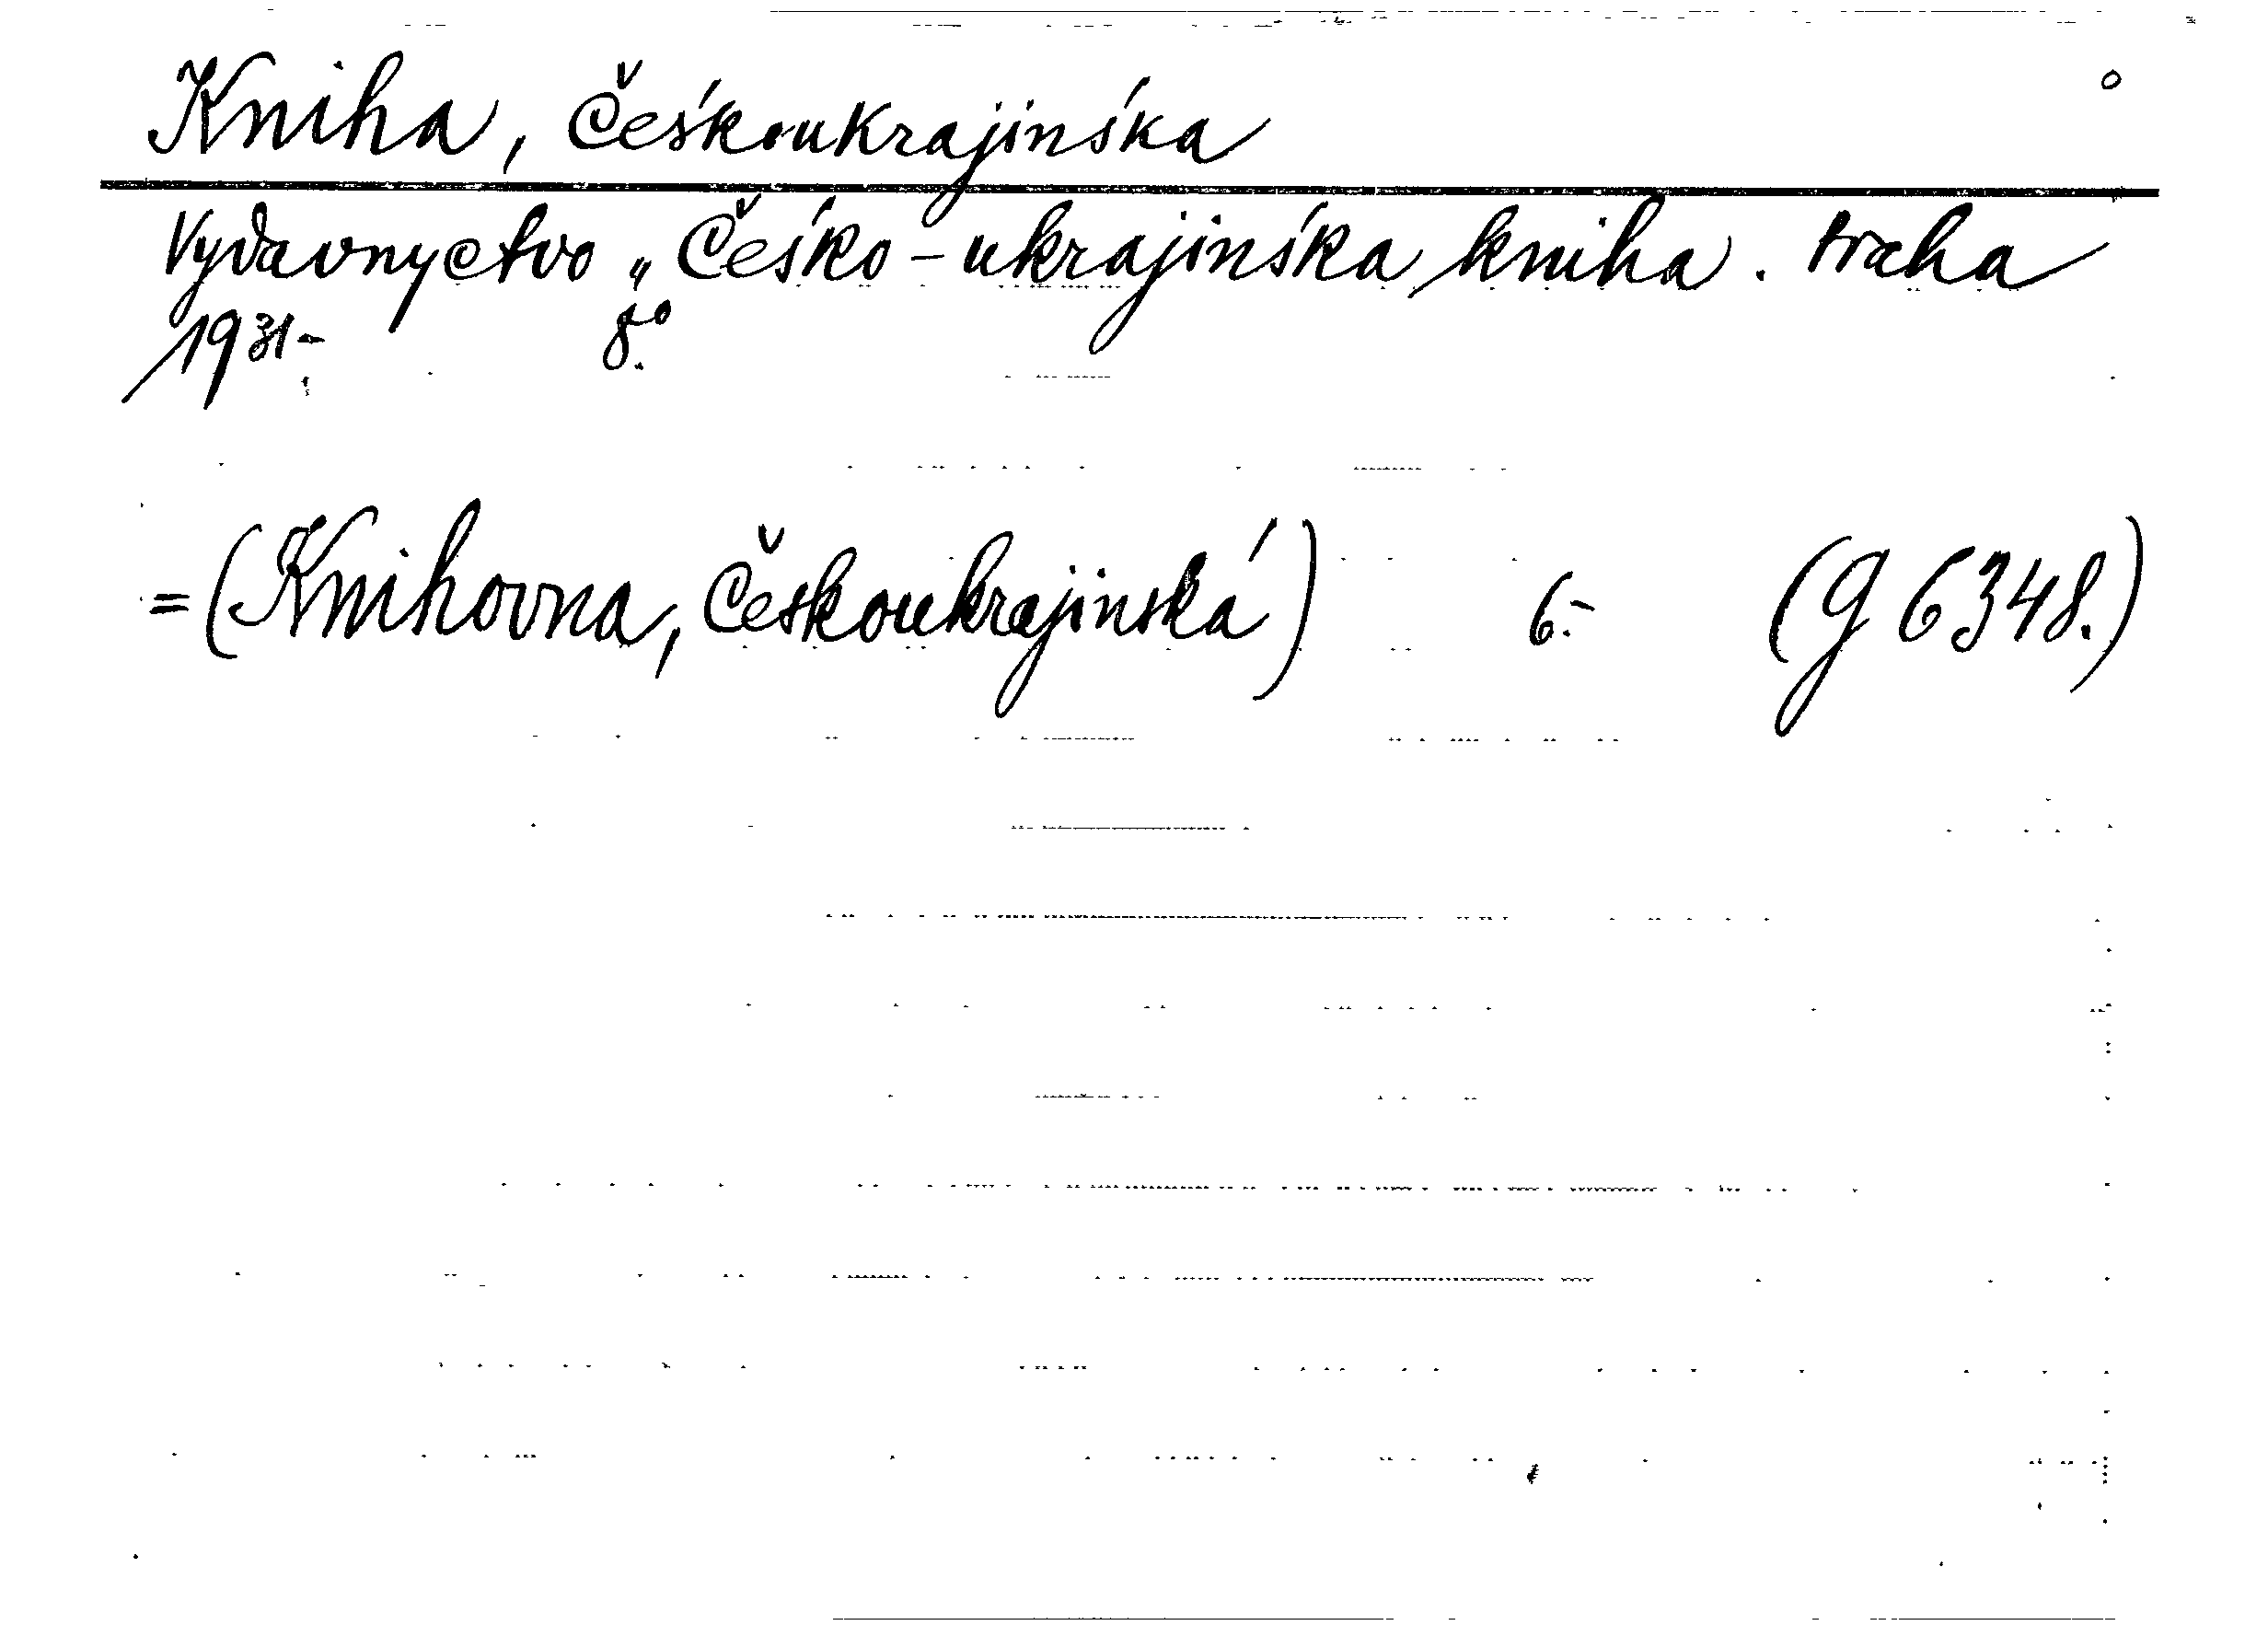 Kniha, Češkoukrajinśka
Vydavnyctvo „Češko-ukrajinśka kniha. Praha
1931- 8°.
=(Knihovna, Českoukrajinská) 6.- (g 6348.)